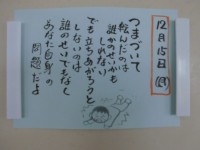 12月15日(民)
つまづいて
転んだのは
誰かのせいかも
しれない
でも立ちあがろうと
しないのは
誰のせいでもなく
あなた自身の
問題だよ